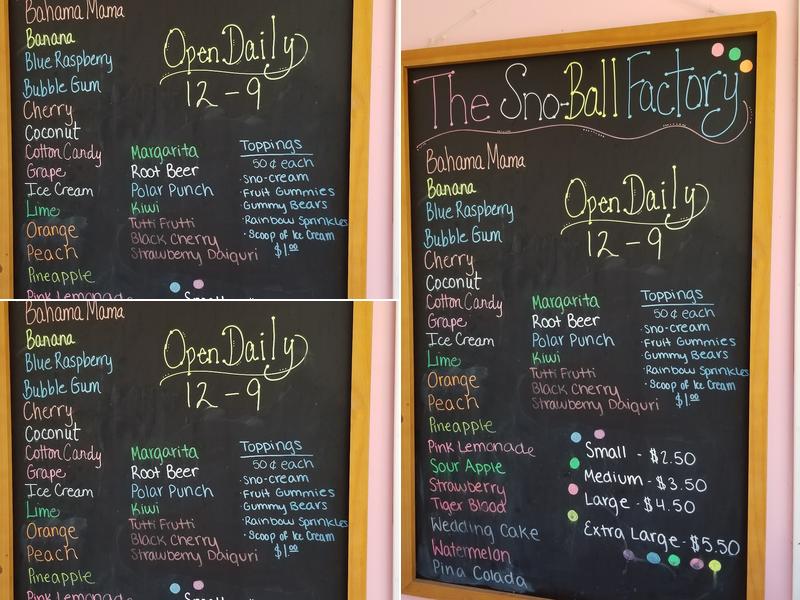 Bahama Mama
Banana
Blue Raspberry
Bubble Gum
Cherry
Coconut
Cotton Candy
Grape
Ice Cream
Lime
Orange
Peach
Pineapple
Pink Lemonade
Open Daily
12 - 9
Margarita
Root Beer
Polar Punch
Kiwi
Tutti Frutti
Black Cherry
Strawberry Daiquri
Toppings
50¢ each
·Sno-cream
·Fruit Gummies
·Gummy Bears
·Rainbow Sprinkles
·Scoop of Ice Cream
$1.00
Bahama Mama
Banana
Blue Raspberry
Bubble Gum
Cherry
Coconut
Cotton Candy
Grape
Ice Cream
Lime
Orange
Peach
Pineapple
Pink Lemonade
Open Daily
12 - 9
Margarita
Root Beer
Polar Punch
Kiwi
Tutti Frutti
Black Cherry
Strawberry Daiquri
Toppings
50¢ each
·Sno-cream
·Fruit Gummies
·Gummy Bears
·Rainbow Sprinkles
·Scoop of Ice Cream
$1.00
The Sno-Ball Factory
Bahama Mama
Banana
Blue Raspberry
Bubble Gum
Cherry
Coconut
Cotton Candy
Grape
Ice Cream
Lime
Orange
Peach
Pineapple
Pink Lemonade
Sour Apple
Strawberry
Tiger Blood
Wedding Cake
Watermelon
Pina Colada
Open Daily
12 - 9
Margarita
Root Beer
Polar Punch
Kiwi
Tutti Frutti
Black Cherry
Strawberry Daiquri
Toppings
50¢ each
·Sno-cream
·Fruit Gummies
·Gummy Bears
·Rainbow Sprinkles
·Scoop of Ice Cream
$1.00
Small - $2.50
Medium - $3.50
Large - $4.50
Extra Large - $5.50